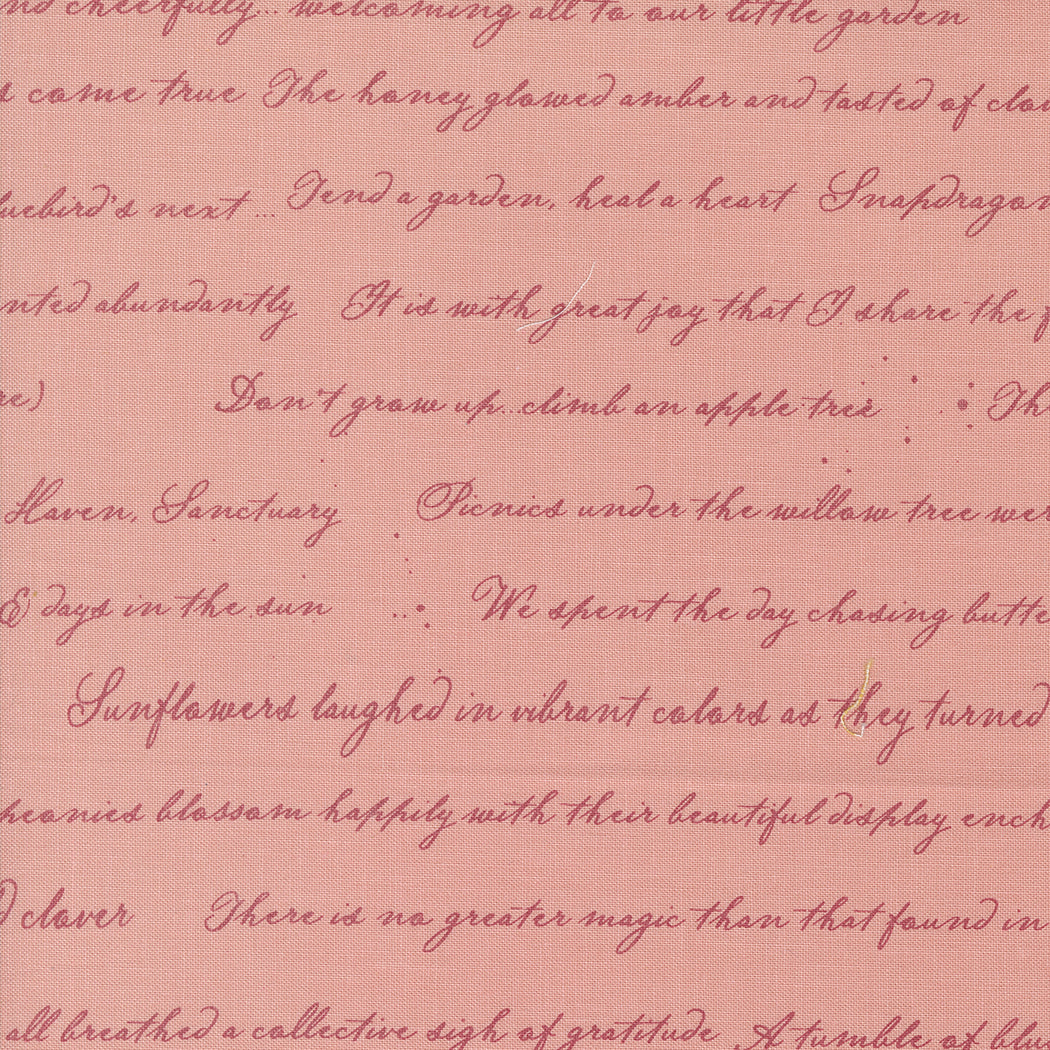 cheerfully... welcoming all to our little garden
come true The honey glowed amber and tasted of
next ... Tend a garden, heal a heart Snapdragon
abundantly It is with great joy that I share the
Don't grow up...climb an apple tree
Haven, Sanctuary Picnics under the willow tree
& days in the sun We spent the day chasing
Sunflowers laughed in vibrant colors as they turned
peonies blossom happily with their beautiful display
clover There is no greater magic than that found in
all breathed a collective sigh of gratitude A tumble of